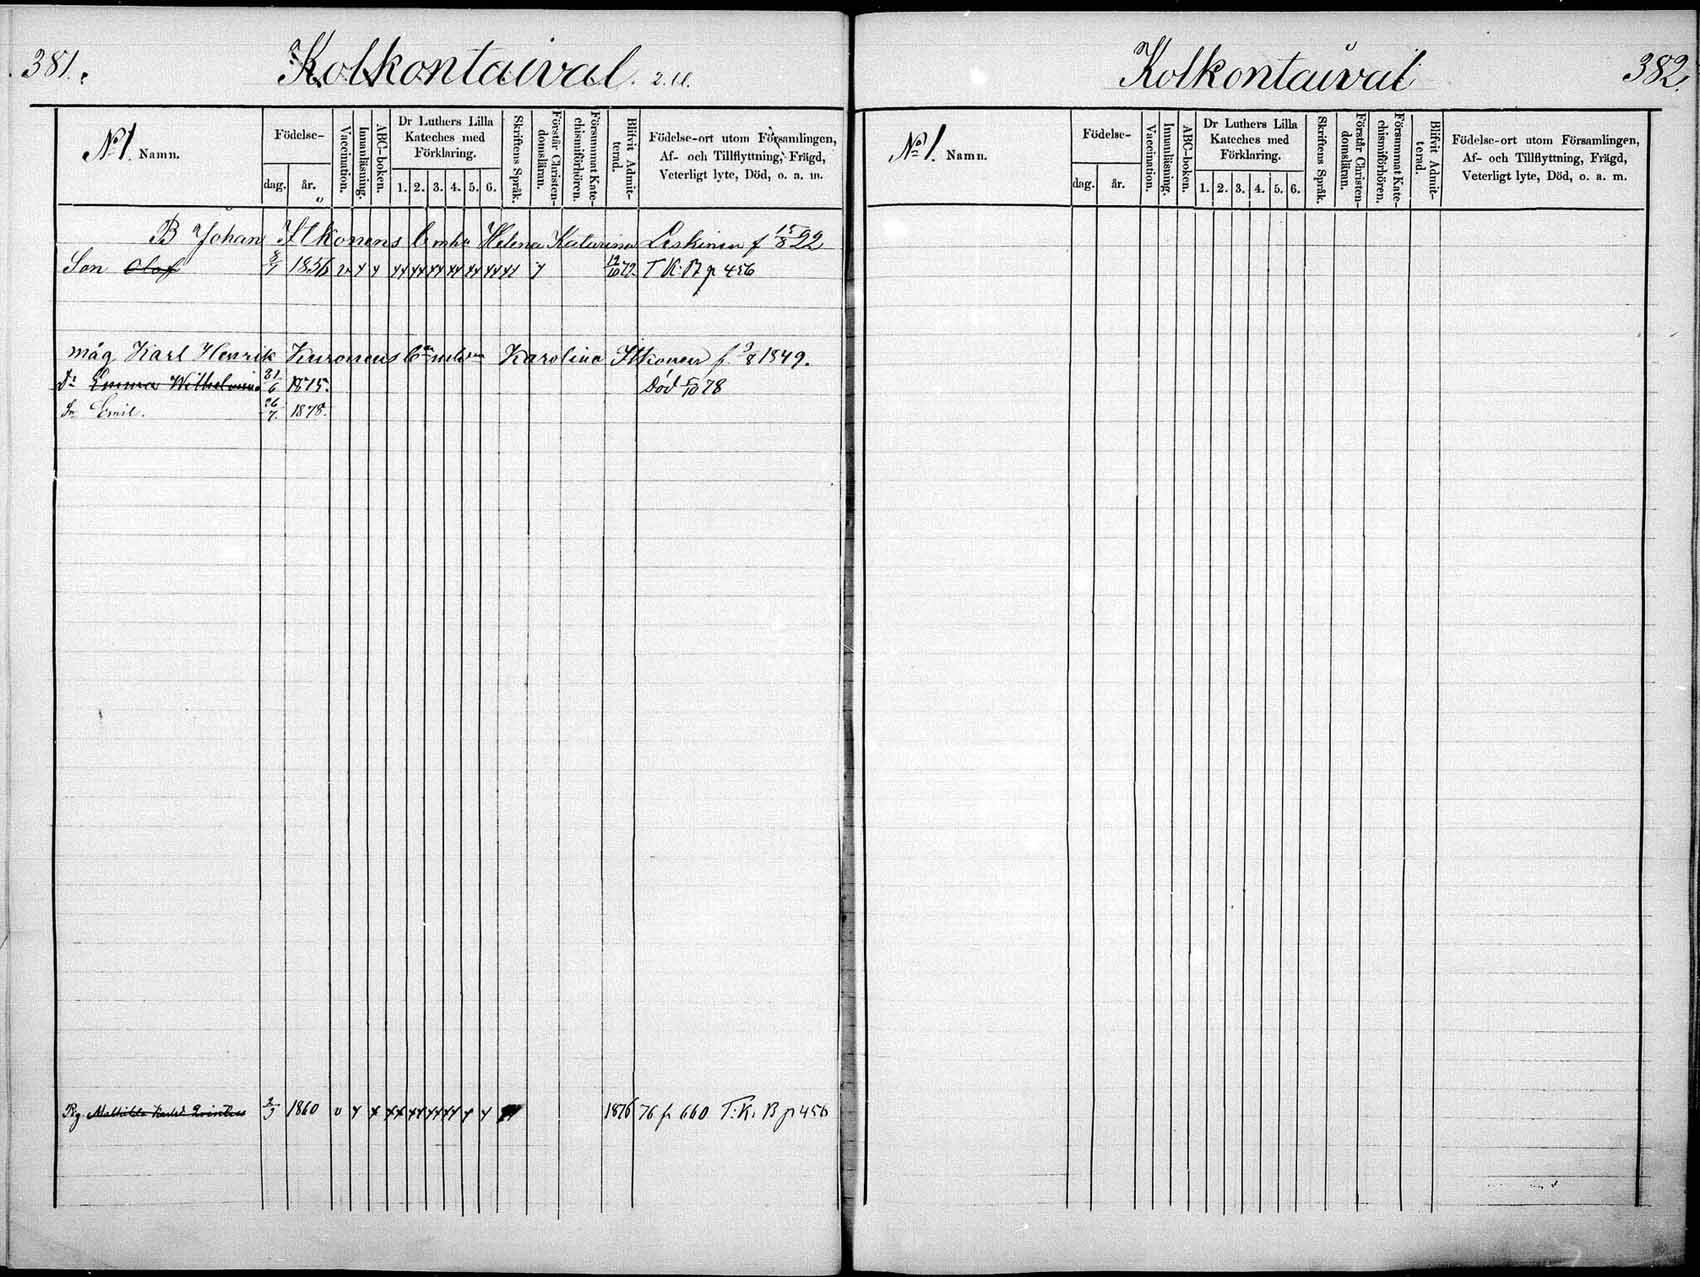 381.
Kolkontaival. 2. H.
No 1. Namn.
Födelse-
dag. år.
Vaccination.
Innanläsning.
ABC-boken.
Dr Luthers Lilla Kateches med Förklaring.
1. 2. 3. 4. 5. 6.
Skriftens Språk.
Förstår Christen-domsläran.
Försummat Kate-chismiförhören.
Blifvit Admit-terad.
Födelse-ort utom Församlingen,
Af- och Tillflyttning, Frägd,
Veterligt lyte, Död, o. a. m.
B Johan Itkonens Enka Helena Katarina Leskinen f 15/8 22
Son Olof 8/7 1856 v x x xx xx xx xx xx xx xx x 12/10 72 T K. B p 456
måg Karl Henrik Kuronens Karolina Itkonen f. 3/8 1849.
Dr Emma Wilhelmina 21/6 1875. Död 5/10 78
Sn Emil. 26/7. 1878.
Pg Mathilda 2/3 1860 v x x xx xx xx xx x x 1876 76 p 660 T. K. B p 456
Kolkontaival
382.
No 1. Namn.
Födelse-
dag. år.
Vaccination.
Innanläsning.
ABC-boken.
Dr Luthers Lilla Kateches med Förklaring.
1. 2. 3. 4. 5. 6.
Skriftens Språk.
Förstår Christen-domsläran.
Försummat Kate-chismiförhören.
Blifvit Admit-terad.
Födelse-ort utom Församlingen,
Af- och Tillflyttning, Frägd,
Veterligt lyte, Död, o. a. m.